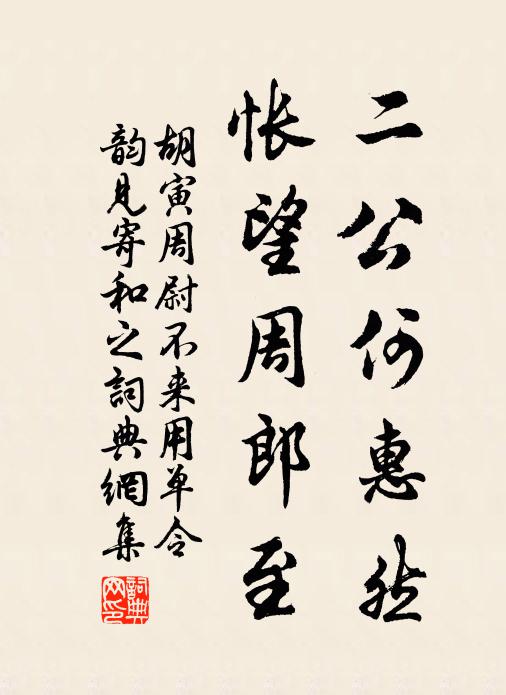 二公何惠然
怅望周郎至
胡寅周尉不来用单令
韵见寄和之词典網集
詞典网印